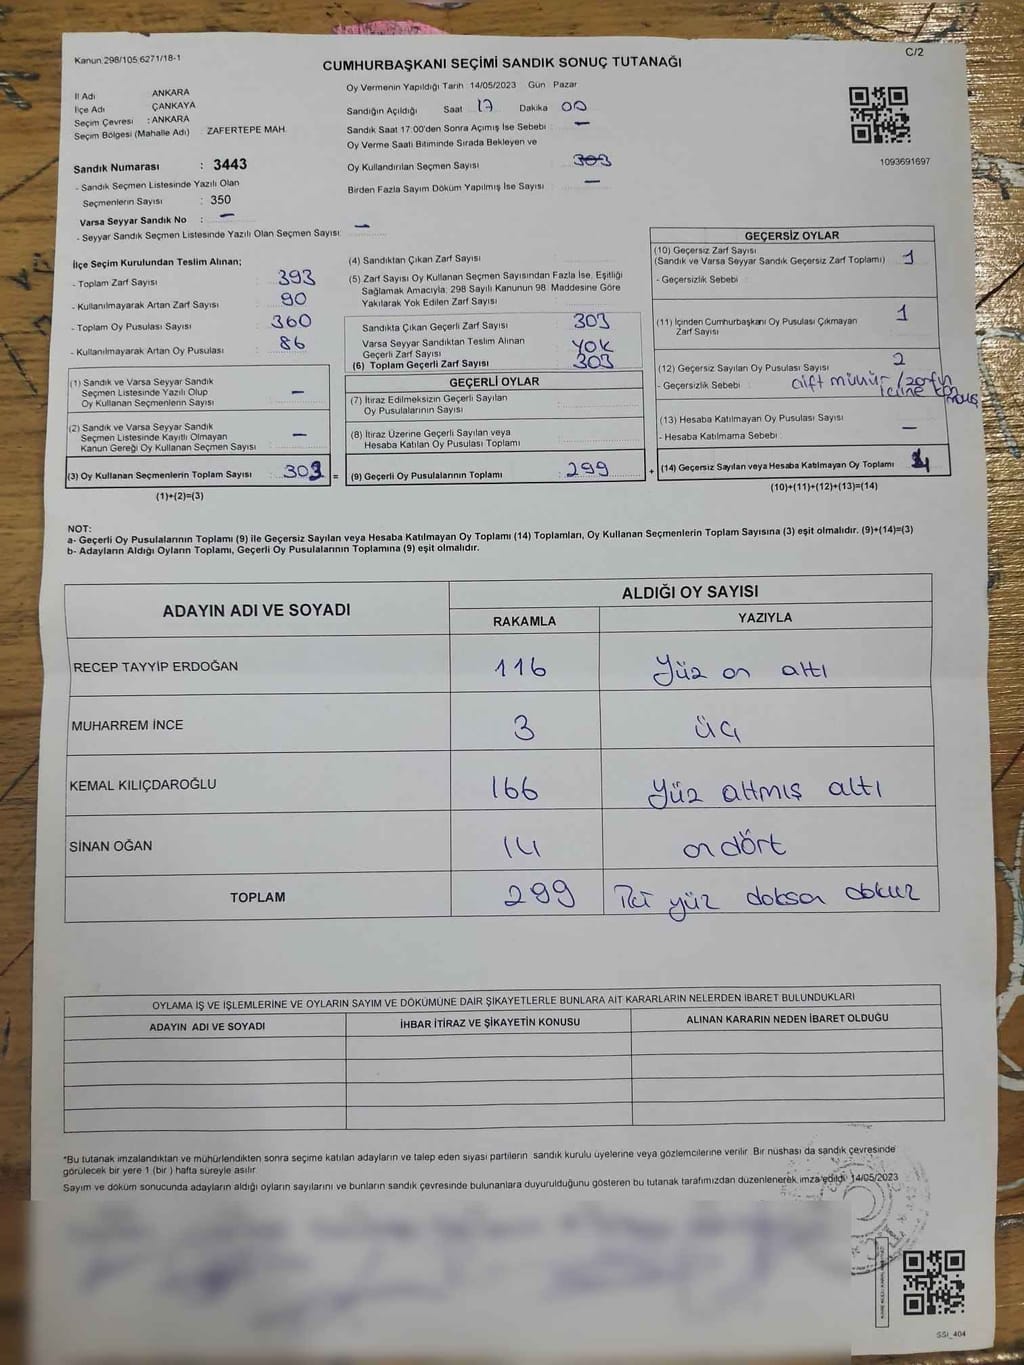 Kanun 298/105 6271/18-1
C/2
CUMHURBAŞKANI SEÇİMİ SANDIK SONUÇ TUTANAĞI
İl Adı ANKARA
İlçe Adı ÇANKAYA
Seçim Çevresi : ANKARA
Seçim Bölgesi (Mahalle Adı) : ZAFERTEPE MAH.
Sandık Numarası : 3443
- Sandık Seçmen Listesinde Yazılı Olan
Seçmenlerin Sayısı : 350
Varsa Seyyar Sandık No : –
- Seyyar Sandık Seçmen Listesinde Yazılı Olan Seçmen Sayısı: –
Oy Vermenin Yapıldığı Tarih 14/05/2023 Gün Pazar
Sandığın Açıldığı Saat 17 Dakika 00
Sandık Saat 17:00'den Sonra Açımış İse Sebebi : –
Oy Verme Saati Bitiminde Sırada Bekleyen ve
Oy Kullandırılan Seçmen Sayısı : 303
Birden Fazla Sayım Döküm Yapılmış İse Sayısı : –
1093691697
İlçe Seçim Kurulundan Teslim Alınan;
- Toplam Zarf Sayısı : 393
- Kullanılmayarak Artan Zarf Sayısı : 90
- Toplam Oy Pusulası Sayısı : 360
- Kullanılmayarak Artan Oy Pusulası : 86
(1) Sandık ve Varsa Seyyar Sandık
Seçmen Listesinde Yazılı Olup
Oy Kullanan Seçmenlerin Sayısı –
(2) Sandık ve Varsa Seyyar Sandık
Seçmen Listesinde Kayıtlı Olmayan
Kanun Gereği Oy Kullanan Seçmen Sayısı –
(3) Oy Kullanan Seçmenlerin Toplam Sayısı : 303 =
(1)+(2)=(3)
(4) Sandıktan Çıkan Zarf Sayısı
(5) Zarf Sayısı Oy Kullanan Seçmen Sayısından Fazla İse, Eşitliği
Sağlamak Amacıyla; 298 Sayılı Kanunun 98. Maddesine Göre
Yakılarak Yok Edilen Zarf Sayısı :
Sandıkta Çıkan Geçerli Zarf Sayısı : 303
Varsa Seyyar Sandıktan Teslim Alınan
Geçerli Zarf Sayısı : YOK
(6) Toplam Geçerli Zarf Sayısı : 303
GEÇERLİ OYLAR
(7) İtiraz Edilmeksizin Geçerli Sayılan
Oy Pusulalarının Sayısı
(8) İtiraz Üzerine Geçerli Sayılan veya
Hesaba Katılan Oy Pusulası Toplamı
(9) Geçerli Oy Pusulalarının Toplamı : 299 +
GEÇERSİZ OYLAR
(10) Geçersiz Zarf Sayısı
(Sandık ve Varsa Seyyar Sandık Geçersiz Zarf Toplamı) : 1
- Geçersizlik Sebebi :
(11) İçinden Cumhurbaşkanı Oy Pusulası Çıkmayan
Zarf Sayısı 1
(12) Geçersiz Sayılan Oy Pusulası Sayısı : 2
- Geçersizlik Sebebi : çift mühür / zarfın
içine konmuş
(13) Hesaba Katılmayan Oy Pusulası Sayısı : –
- Hesaba Katılmama Sebebi :
(14) Geçersiz Sayılan veya Hesaba Katılmayan Oy Toplamı : 4
(10)+(11)+(12)+(13)=(14)
NOT:
a- Geçerli Oy Pusulalarının Toplamı (9) ile Geçersiz Sayılan veya Hesaba Katılmayan Oy Toplamı (14) Toplamları, Oy Kullanan Seçmenlerin Toplam Sayısına (3) eşit olmalıdır. (9)+(14)=(3)
b- Adayların Aldığı Oyların Toplamı, Geçerli Oy Pusulalarının Toplamına (9) eşit olmalıdır.
ADAYIN ADI VE SOYADI ALDIĞI OY SAYISI
RAKAMLA YAZIYLA
RECEP TAYYİP ERDOĞAN 116 Yüz on altı
MUHARREM İNCE 3 üç
KEMAL KILIÇDAROĞLU 166 Yüz altmış altı
SİNAN OĞAN 14 on dört
TOPLAM 299 İki yüz doksan dokuz
OYLAMA İŞ VE İŞLEMLERİNE VE OYLARIN SAYIM VE DÖKÜMÜNE DAİR ŞİKAYETLERLE BUNLARA AİT KARARLARIN NELERDEN İBARET BULUNDUKLARI
ADAYIN ADI VE SOYADI İHBAR İTİRAZ VE ŞİKAYETİN KONUSU ALINAN KARARIN NEDEN İBARET OLDUĞU
*Bu tutanak imzalandıktan ve mühürlendikten sonra seçime katılan adayların ve talep eden siyasi partilerin sandık kurulu üyelerine veya gözlemcilerine verilir. Bir nüshası da sandık çevresinde
görülecek bir yere 1 (bir) hafta süreyle asılır.
Sayım ve döküm sonucunda adayların aldığı oyların sayılarını ve bunların sandık çevresinde bulunanlara duyurulduğunu gösteren bu tutanak tarafımızdan düzenlenerek imza edildi. 14/05/2023
SSI_404